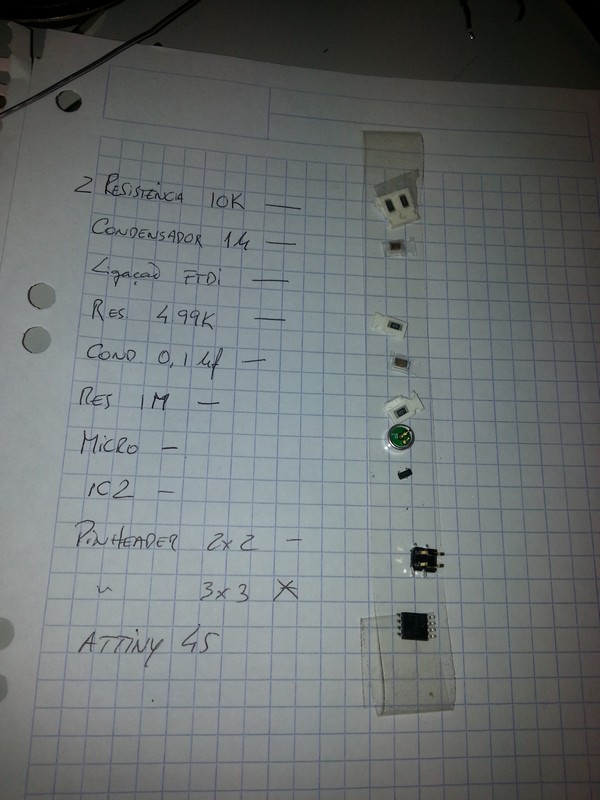 2 RESISTÊNCIA 10K —
CONDENSADOR 1µ —
Ligação FTDi —
RES. 499K —
COND 0,1 µf —
RES 1M —
MiCRO —
IC2 —
PiNHEADER 2x2 —
" 3x3 X
ATTiNY 45